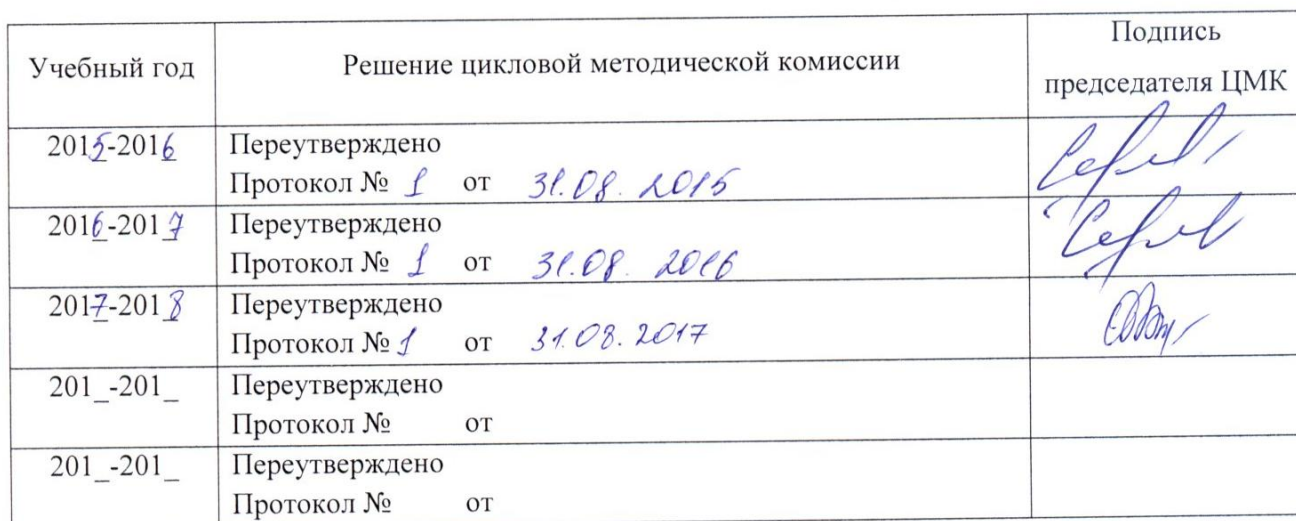 Учебный год
Решение цикловой методической комиссии
Подпись
председателя ЦМК
2015-2016
Переутверждено
Протокол № 1 от 31.08. 2015
2016-2017
Переутверждено
Протокол № 1 от 31.08. 2016
2017-2018
Переутверждено
Протокол № 1 от 31.08. 2017
201_-201_
Переутверждено
Протокол № от
201_-201_
Переутверждено
Протокол № от